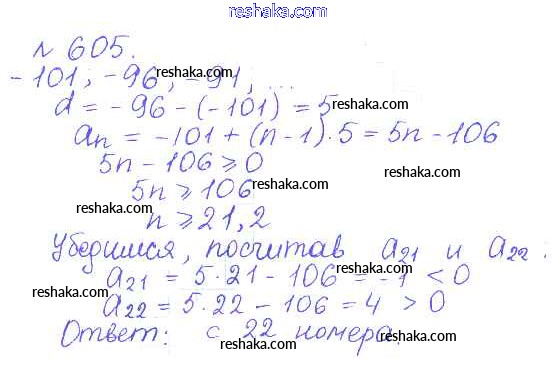 reshaka.com
№ 605.
-101; -96; -91; ... reshaka.com reshaka.com
d = -96 - (-101) = 5 reshaka.com
reshaka.com
aₙ = -101 + (n-1)·5 = 5n - 106
5n - 106 ⩾ 0 reshaka.com
5n ⩾ 106 reshaka.com
reshaka.com
n ⩾ 21,2 reshaka.com
Убедимся, посчитав a₂₁ и a₂₂.
reshaka.com
a₂₁ = 5·21 - 106 = -1 < 0
reshaka.com reshaka.com
a₂₂ = 5·22 - 106 = 4 > 0
Ответ: с 22 номера.
reshaka.com reshaka.com